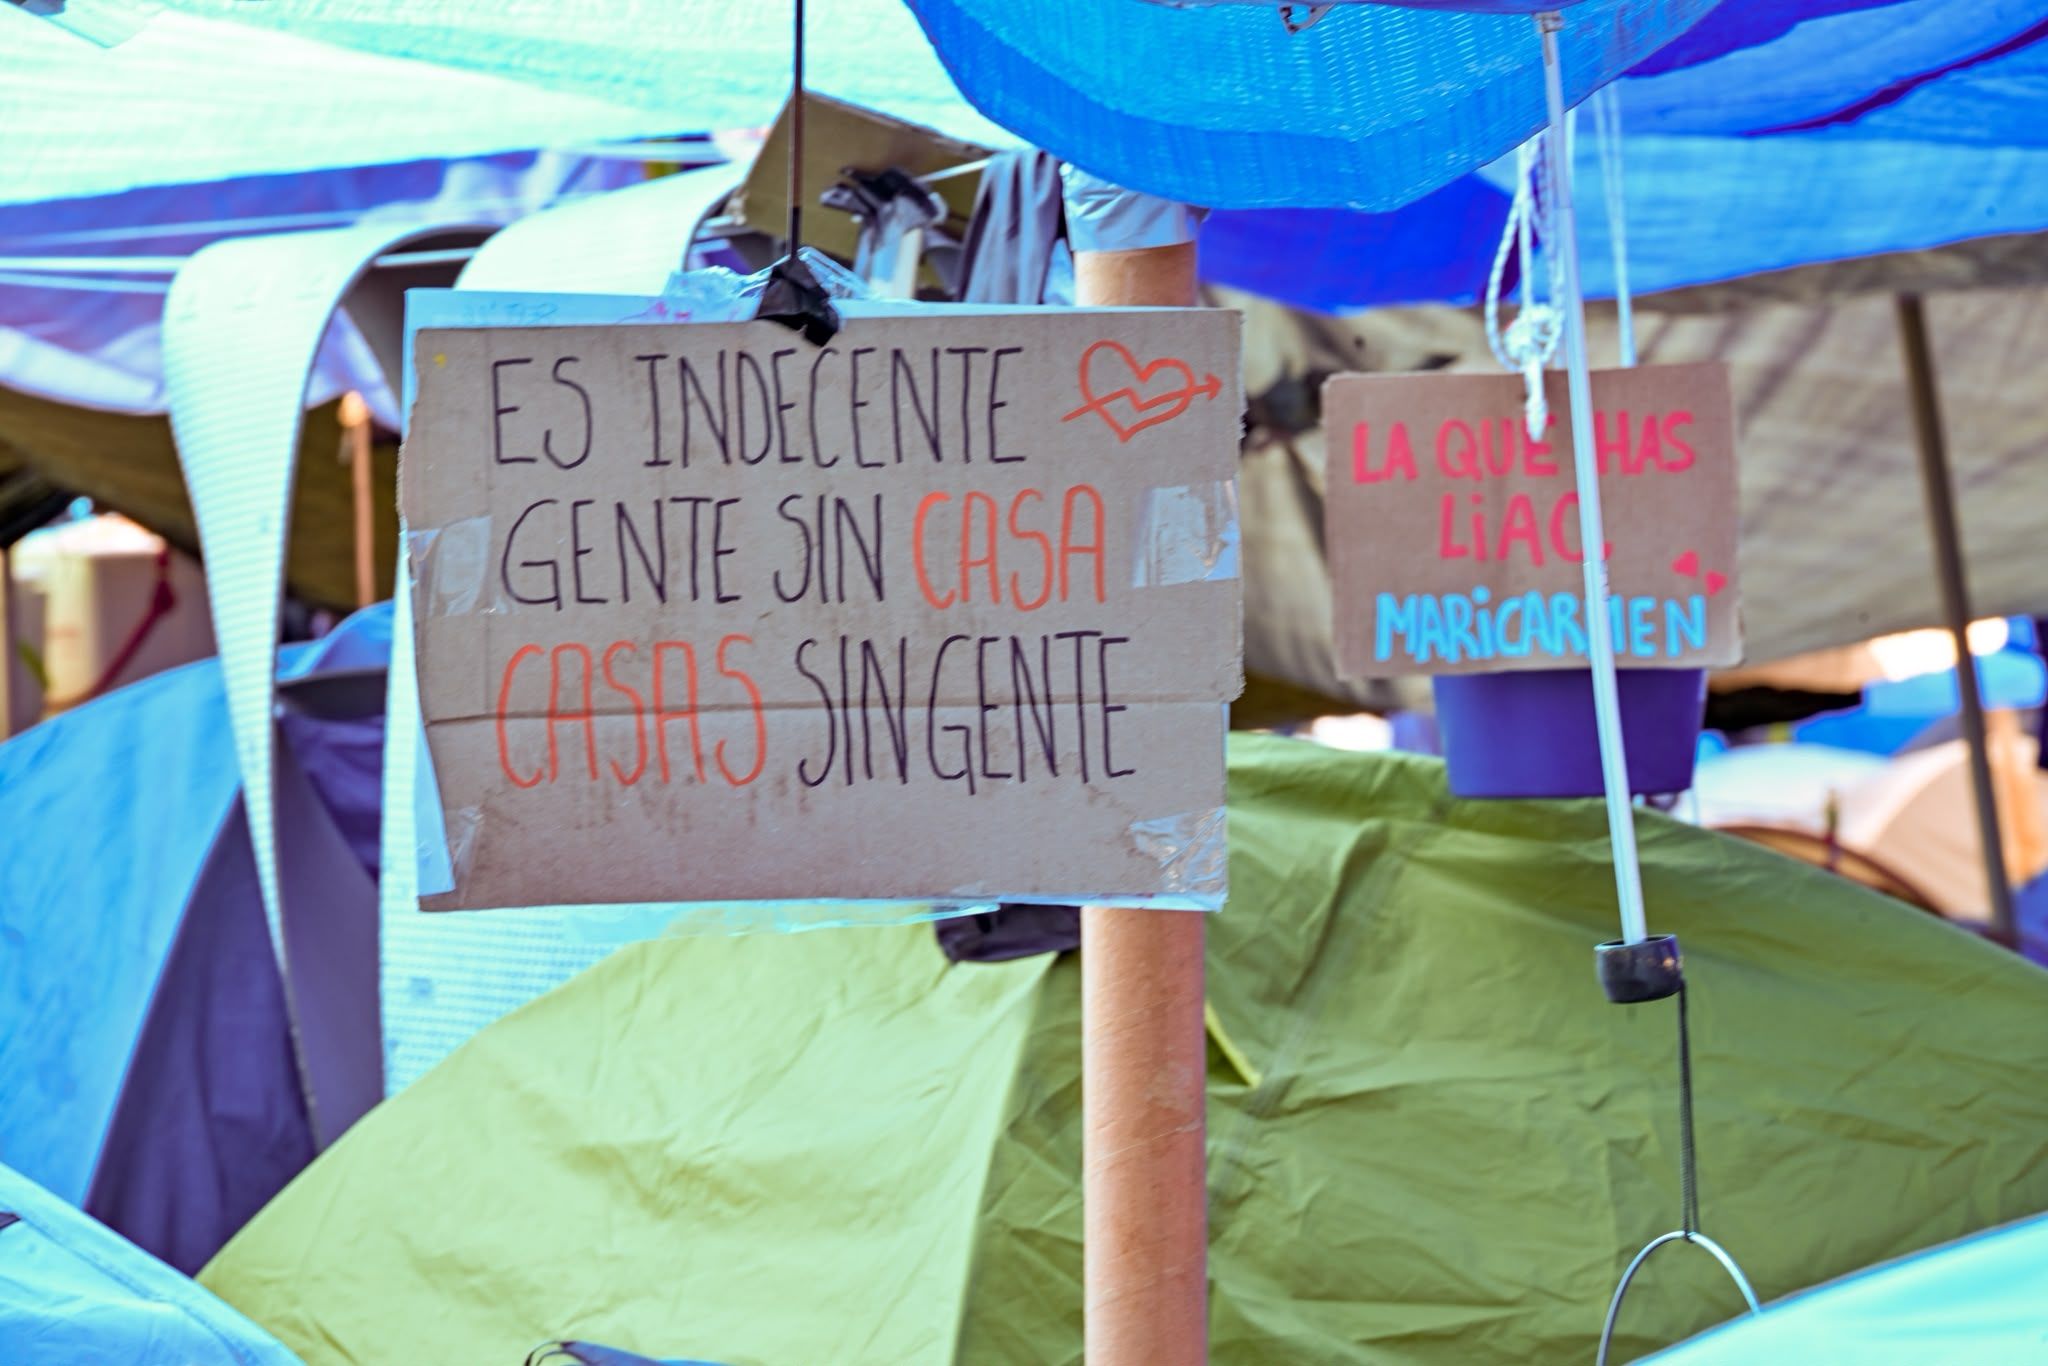 ES INDECENTE
GENTE SIN CASA
CASAS SIN GENTE
LA QUE HAS
MARICARMEN